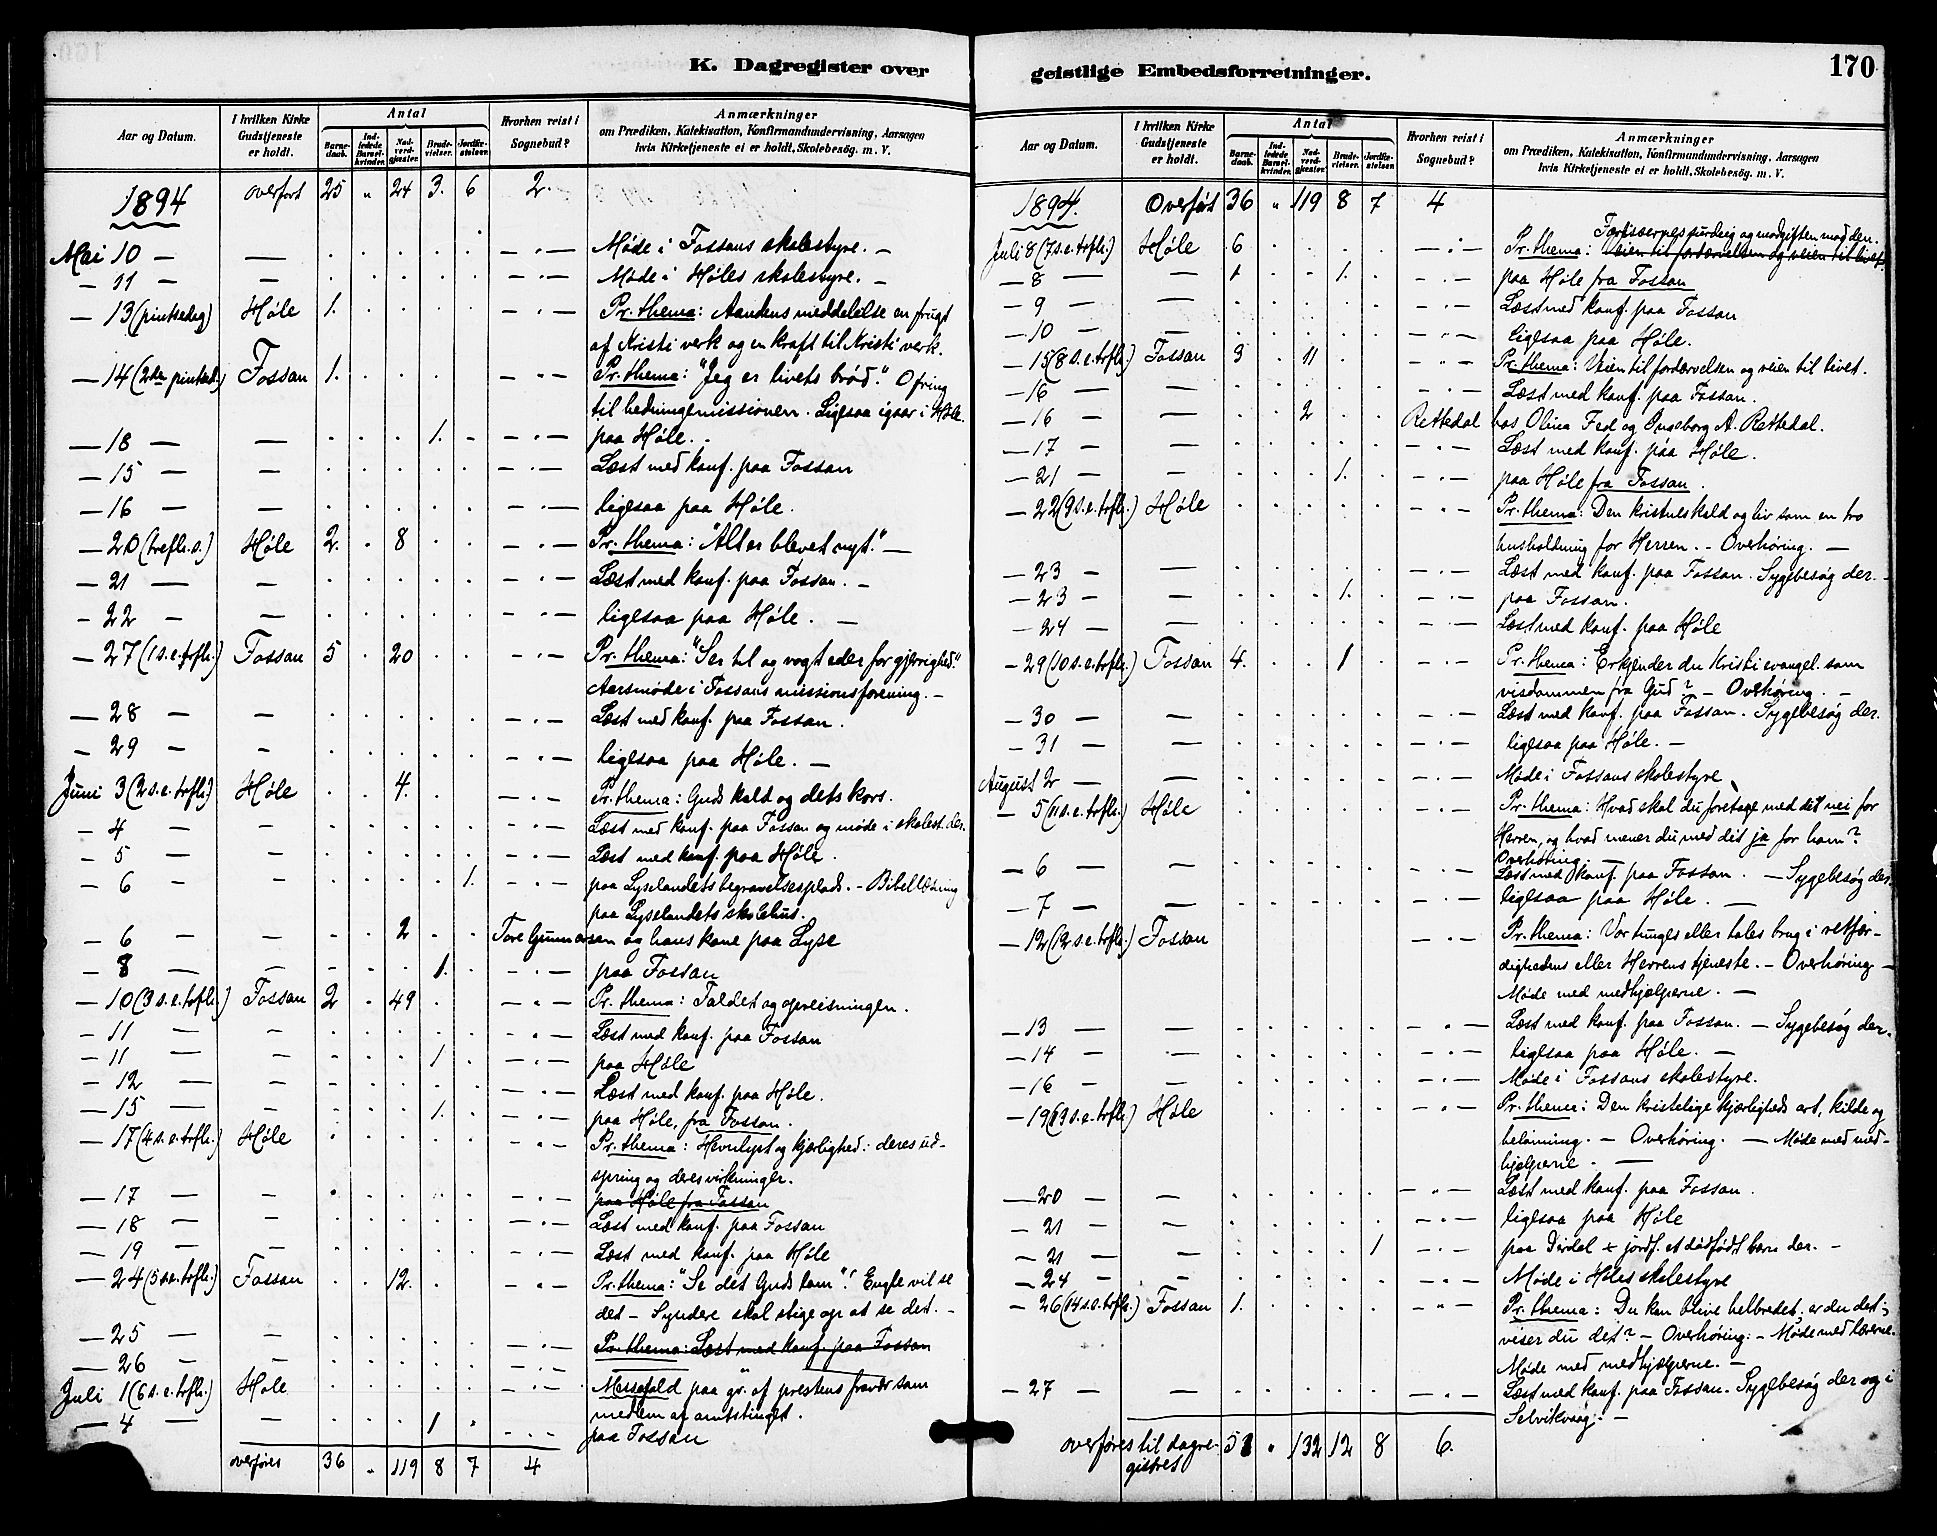 K. Dagregister over
Aar og Datum.
I hvilken Kirke Gudstjeneste er holdt.
Antal
Barne-daab.
Ind-ledede Barsel-kvinder.
Nad-verd-gjester.
Brude-vielser.
Jordfæ-stelser.
Hvorhen reist i Sognebud?
Anmærkninger
om Prædiken, Katekisation, Konfirmandundervisning, Aarsagen
hvis Kirketjeneste ei er holdt, Skolebesøg. m. V.
1894 overført 25 " 24 3. 6 2.
Mai 10 — — — . — Møde i Fossans skolestyre. —
— 11 — — — . — Møde i Høles skolestyre. —
— 13 (pintsedag) Høle 1. — . — Pr. thema: Aandens meddelelse en frugt
af Kristi verk og en kraft til Kristi verk.
— 14 (2den pintsed.) Fossan 1. — . — Pr. thema: "Jeg er livets brød." Ofring
til hedningemissionen. Ligesaa igaar i Høle.
— 18 — — 1. — . — paa Høle.
— 15 — — — . — Læst med konf. paa Fossan
— 16 — — — . — ligesaa paa Høle.
— 20 (trefh. s.) Høle 2. 8 — . — Pr. thema: "Alt er blevet nyt." —
— 21 — — — . — Læst med konf. paa Fossan. —
— 22 — — — . — ligesaa paa Høle. —
— 27 (1 s. e. trfh.) Fossan 5 20 — . — Pr. thema: "Ser til og vogt eder for gjerrighed."
Aarsmøde i Fossans missionsforening. —
— 28 — — — . — Læst med konf. paa Fossan.
— 29 — — — . — ligesaa paa Høle. —
Juni 3 (2 s. e. trfh.) Høle 4. — . — Pr. thema: Guds kald og dets kors.
— 4 — — — . — Læst med konf. paa Fossan og møde i skolest. der.
— 5 — — — . — Læst med konf. paa Høle.
— 6 — — 1. — . — paa Lyselandets begravelsesplads. — Bibellæsning
paa Lyselandets skolehus.
— 6 — — 2 Tore Gunnarsen og hans kone paa Lyse
— 8 — — 1. — . — paa Fossan
— 10 (3 s. e. trfh.) Fossan 2 49 — . — Pr. thema: Faldet og opreisningen.
— 11 — — — . — Læst med konf. paa Fossan
— 11 — — 1 — . — paa Høle
— 12 — — — . — Læst med konf. paa Høle.
— 15 — — 1. — . — paa Høle, fra Fossan.
— 17 (4 s. e. trfh.) Høle — . — Pr. thema: Hevnlyst og kjærlighed: deres ud-
spring og deres virkninger.
— 17 — — — . — paa Høle fra Fossan
— 18 — — — . — Læst med konf. paa Fossan
— 19 — — — . — Læst med konf. paa Høle
— 24 (5 s.e. trfh.) Fossan 12. — . — Pr. thema: "Se det Guds lam"! Engle vil se
det — Syndere skal stige op at se det. —
— 25 — — — . — Pr. thema: Læst med konf. paa Fossan
— 26 — — — . — "
Juli 1 (6 s. e. trfh.) Høle — . — Messefald paa gr. af prestens fravær som
medlem af amtstinget.
— 4 — — 1 — . — paa Fossan
overføres 36 " 119 8 7 4
geistlige Embedsforretninger.
170
Aar og Datum.
I hvilken Kirke Gudstjeneste er holdt.
Antal
Barne-daab.
Ind-ledede Barsel-kvinder.
Nad-verd-gjester.
Brude-vielser.
Jordfæ-stelser.
Hvorhen reist i Sognebud?
Anmærkninger
om Prædiken, Katekisation, Konfirmandundervisning, Aarsagen
hvis Kirketjeneste ei er holdt, Skolebesøg. m. V.
1894. Overført 36 " 119 8 7 4
og modgiften mod den.
Juli 8 (7 s. e. trfh.) Høle 6 — . — Pr. thema: Veien til fordærvelsen og veien til livet.
— 8 — — 1. — . — paa Høle fra Fossan
— 9 — — — . — Læst med konf. paa Fossan
— 10 — — — . — ligesaa paa Høle.
— 15 (8 s. e. trfh.) Fossan 3 11 — . — Pr. thema: Veien til fordærvelsen og veien til livet.
— 16 — — — . — Læst med konf. paa Fossan.
— 16 — — 2 Rettedal hos Olina Fed og Ingeborg A. Rettedal.
— 17 — — — . — Læst med konf. paa Høle.
— 21 — — 1. — . — paa Høle fra Fossan.
— 22 (9 s. e. trfh.) Høle — . — Pr. thema: Den kristnes kald og liv som en tro
husholdning for Herren. — Overhøring. —
— 23 — — — . — Læst med konf. paa Fossan. Sygebesøg der. —
— 23 — — 1. — . — paa Fossan.
— 24 — — — . — Læst med konf. paa Høle
— 29 (10 s. e. trfh.) Fossan 4. 1 — . — Pr. thema: Erkjender du Kristi evangel. som
visdommen fra Gud? — Overhøring. —
— 30 — — — . — Læst med konf. paa Fossan. Sygebesøg der.
— 31 — — — . — ligesaa paa Høle. —
August 2 — — — . — Møde i Fossans skolestyre
— 5 (11 s. e. trfh.) Høle — . — Pr. thema: Hvad skal du foretage med det nei for
Herren, og hvad mener du med dit ja for ham?
Overhøring. —
— 6 — — — . — Læst med konf. paa Fossan. — Sygebesøg der.
— 7 — — — . — ligesaa paa Høle. —
— 12 (12 s. e. trfh.) Fossan — . — Pr. thema: Vor tunges eller tales brug i retfær-
dighedens eller Herrens tjeneste. — Overhøring —
Møde med medhjælperne. —
— 13 — — — . — Læst med konf. paa Fossan. — Sygebesøg der.
— 14 — — — . — ligesaa paa Høle. —
— 16 — — — . — Møde i Fossans skolestyre.
— 19 (13 s. e. trfh.) Høle — . — Pr. thema: Den kristelige kjærligheds art, kilde og
belønning. — Overhøring. — Møde med med-
hjælperne. —
— 20 — — — . — Læst med konf. paa Fossan.
— 21 — — — . — ligesaa paa Høle
— 21 — — 1 — . — paa Dirdal jordf. et dødfødt barn der. —
— 24 — — — . — Møde i Høles skolestyre
— 26 (14 s. e. trfh.) Fossan 1. — . — Pr. thema: Du kan blive helbredet; er du det;
viser du det? — Overhøring: — Møde med lærerne.
Møde med medhjælperne. —
— 27 — — — . — Læst med konf. paa Fossan. Sygebesøg der og i
Selvikvaag. —
overføres til dagre-
gistret 51 " 132 12 8 6.